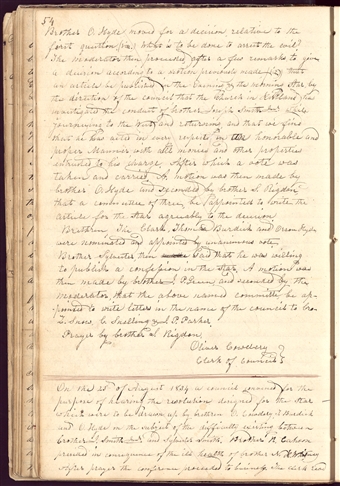 54
Brother O. Hyde moved for a decision relative to the
first question (viz.) What is to be done to arrest the evil.
The moderator then proceeded after a few remarks to give
a decision according to a motion previously made that
an article be published in the Evening & the morning Star by
the direction of the council that the Church in Kirtland has
investigated the conduct of brother Joseph Smith
journeying to the West and returning and that we find
that he has acted in every respect in an honorable and
proper Manner with all monies and other properties
intrusted to his charge. After which a vote was
taken and carried. A motion was then made by
brother O. Hyde and seconded by brother S. Rigdon
that a committee of three be appointed to write the
article for the Star agreeably to the decision
Brethren The Clerk, Thomas Burdick and Orson Hyde
were nominated and appointed by unanimous vote.
Brother Sylvester then said that he was willing
to publish a confession in the Star. A motion was
then made by brother J. P. Green and seconded by the
moderator that the above named committee be ap-
pointed to write letters in the name of the council to Bro
Z. Snow, C. Snelling & J. P. Parker
Prayer by brother S. Rigdon
Oliver Cowdery
Clerk of Council
On the 28th of August 1834 a council convened for the
purpose of hearing the resolution designed for the Star
which were to be drawn up by brethren O. Cowdery, T. Burdick
and O. Hyde on the subject of the difficulty existing between
brother J. Smith and Sylvester Smith. Brother R. Cahoon
presided in consequence of the ill health of brother N. K. Whitney
After prayer the conference proceeded to business. The clerk read